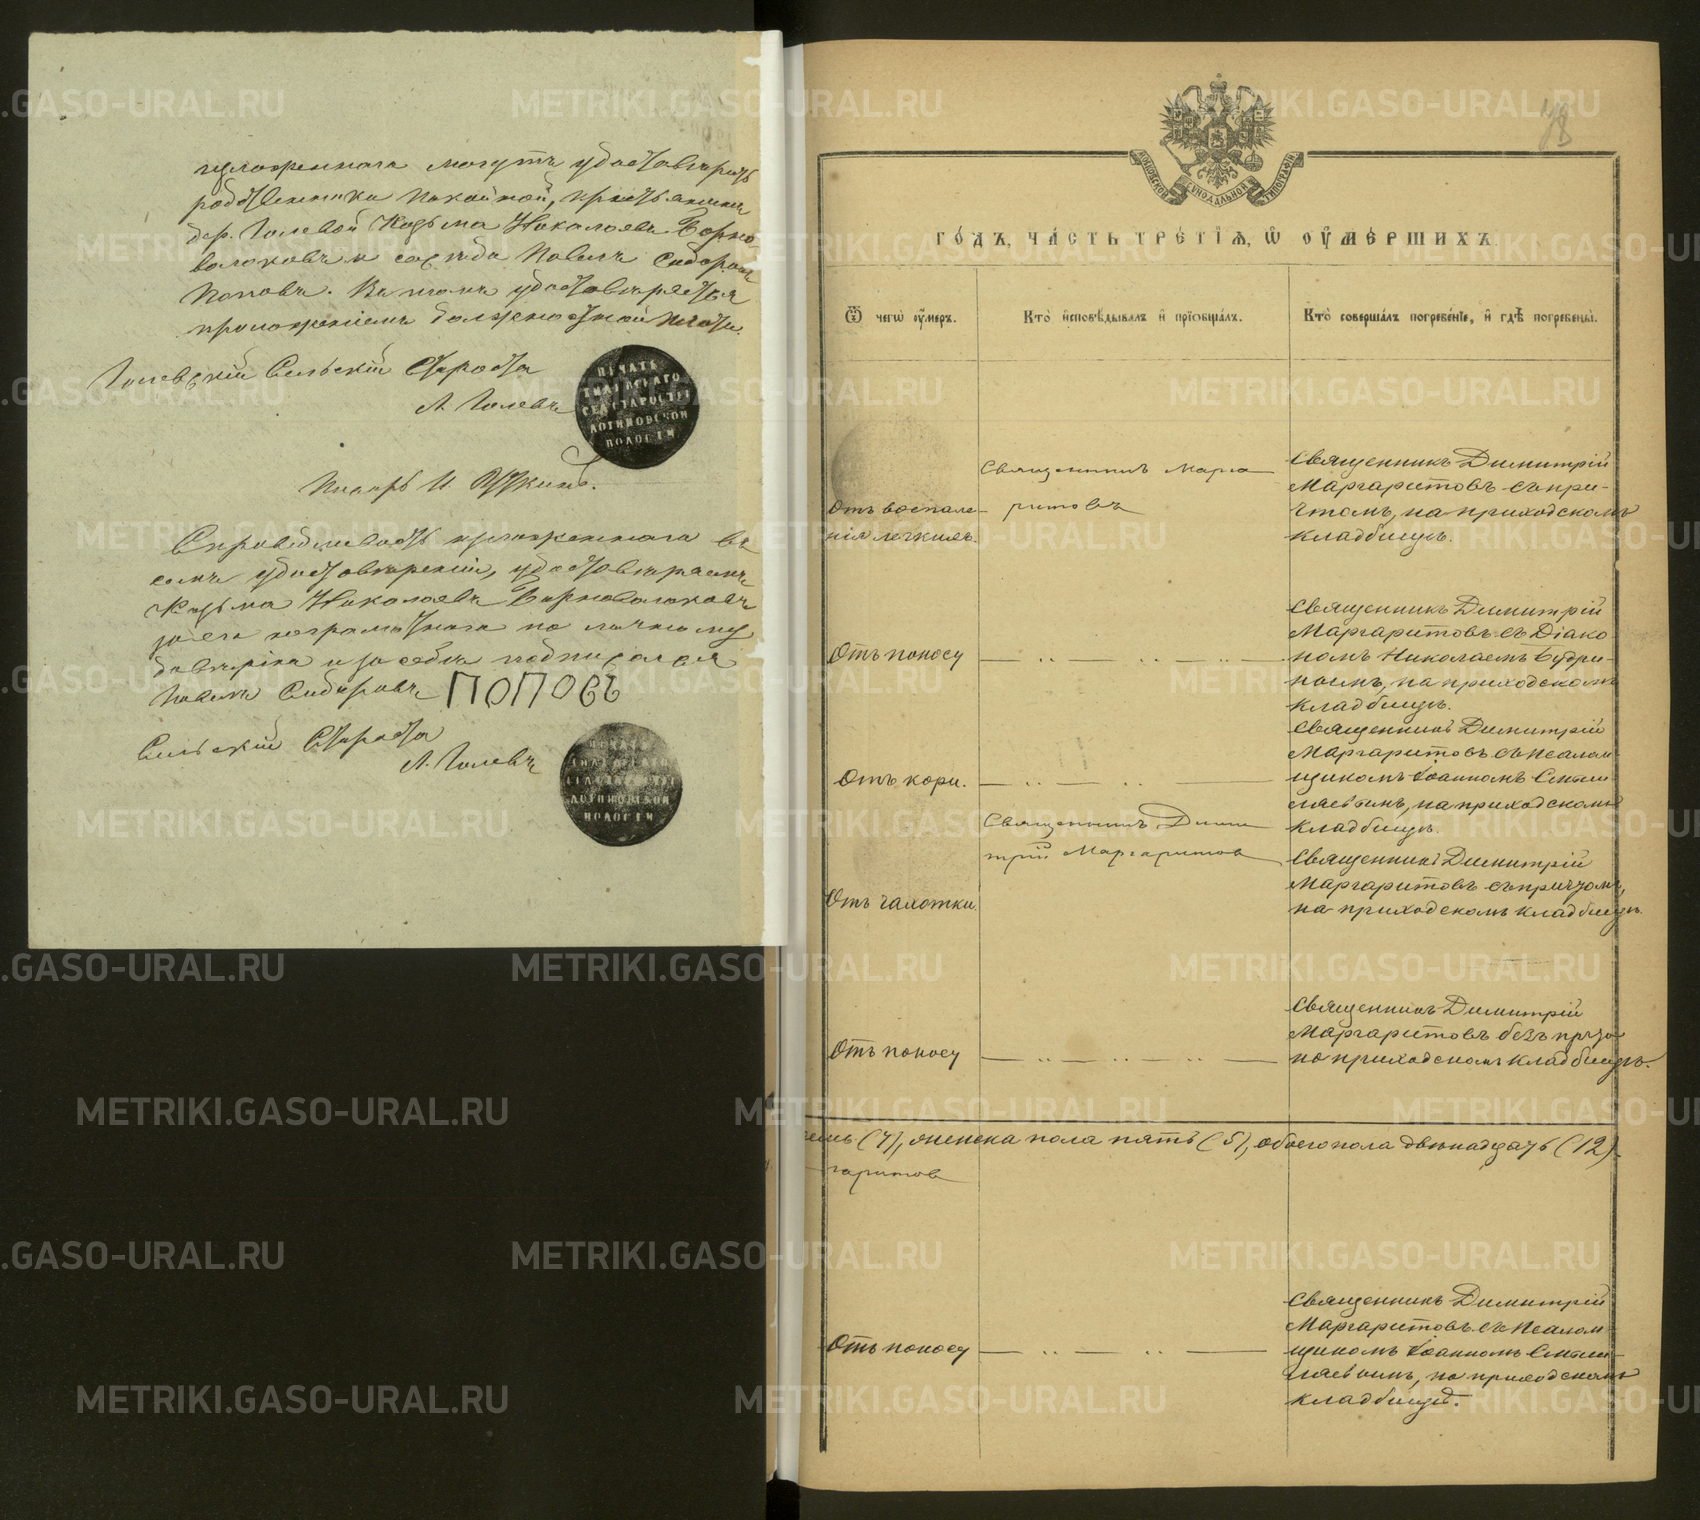 изложеннаго могутъ удостовѣрить
родственники покойной, крестьянинъ
дер. Голевой Козьма Николаевъ Борно-
волоковъ и сосѣдъ Павелъ Сидоровъ
Поповъ. Въ томъ удостовѣряется
приложеніемъ должностной печати.
Голевскій Сельскій Староста
Л. Голевъ
ПЕЧАТЬ
СЕЛ. СТАРОСТЫ
ЛОГИНОВСКОЙ
ВОЛОСТИ
Писарь И.
Справедливость изложеннаго въ
семъ удостовѣреніи, удостовѣряемъ
Козьма Николаевъ Борноволоковъ
за его неграмотнаго по личному
довѣрію и за себя подписался
Павелъ Сидоровъ ПОПОВЪ
Сельскій Староста
Л. Голевъ
ЛОГИНОВСКОЙ
ВОЛОСТИ
78
МОСКОВСКОЙ СѴНОДАЛЬНОЙ ТИПОГРАФІИ
ГО́ДЪ, ЧА́СТЬ ТРЕ́ТІѦ, Ѡ҆ ОУ҆МЕ́РШИХЪ.
Ѿ чегѡ̀ оу҆́меръ.
Кто̀ и҆сповѣ́дывалъ и҆ прїѡбща́лъ.
Кто̀ соверша́лъ погребе́нїе, и҆ гдѣ̀ погребены̀.
Отъ воспале-
нія легкихъ.
Священникъ Марга
ритовъ
Священникъ Димитрій
Маргаритовъ съ при-
чтомъ, на приходскомъ
кладбищѣ.
Отъ поносу
Священникъ Димитрій
Маргаритовъ съ Діако-
номъ Николаемъ Будри-
нымъ, на приходскомъ
кладбищѣ.
Отъ кори.
Священникъ Димитрій
Маргаритовъ съ псалом-
щикомъ Іоанномъ Смыш-
ляевымъ, на приходскомъ
кладбищѣ.
Отъ чахотки.
Священникъ Дими
трій Маргаритовъ
Священникъ Димитрій
Маргаритовъ съ причтомъ,
на приходскомъ кладбищѣ.
Отъ поносу
Священникъ Димитрій
Маргаритовъ безъ причта
на приходскомъ кладбищѣ.
семь (7), женска пола пять (5), обоего пола двѣнадцать (12).
гаритовъ
Отъ поносу
Священникъ Димитрій
Маргаритовъ съ псалом-
щикомъ Іоанномъ Смыш-
ляевымъ, на приходскомъ
кладбищѣ.
METRIKI.GASO-URAL.RU